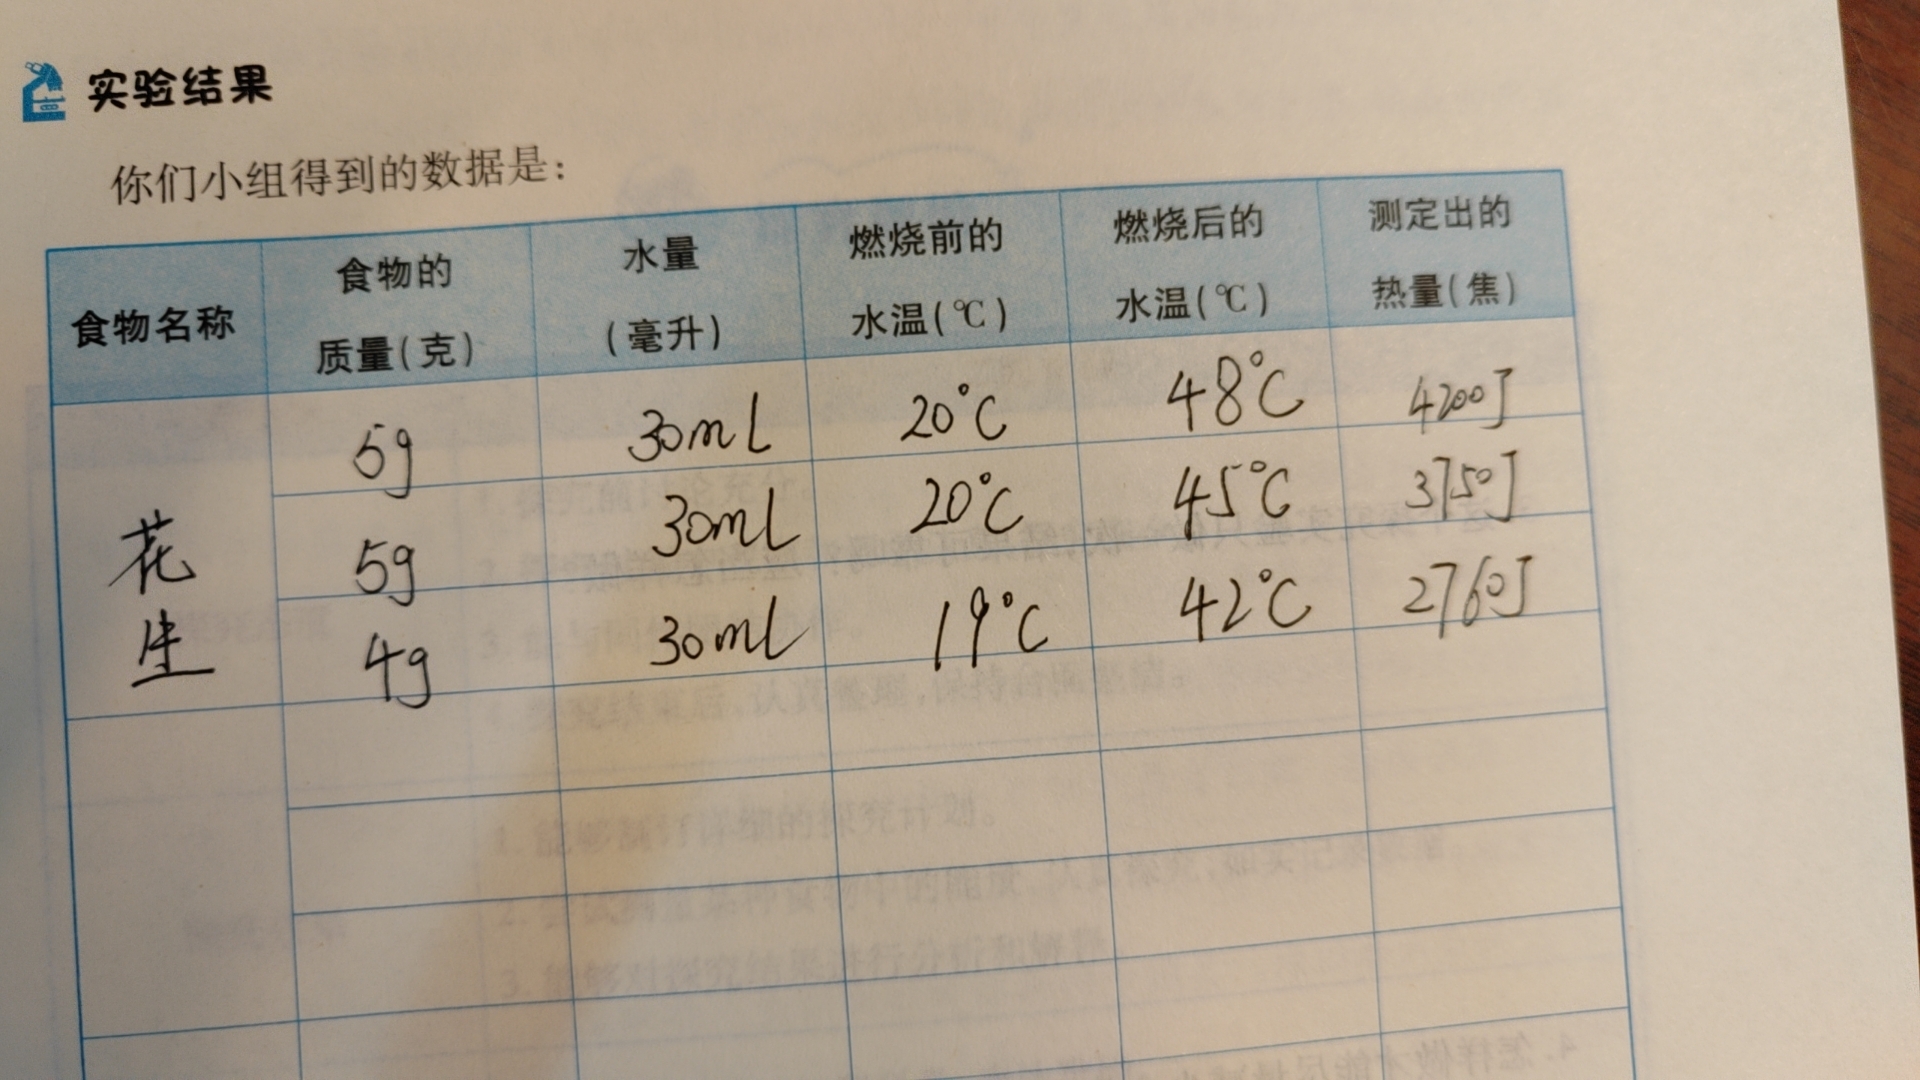 实验结果
你们小组得到的数据是：
食物名称 食物的质量(克) 水量(毫升) 燃烧前的水温(℃) 燃烧后的水温(℃) 测定出的热量(焦)
花生 5g 30ml 20°C 48°C 4200J
5g 30ml 20°C 45°C 3750J
4g 30ml 19°C 42°C 2760J